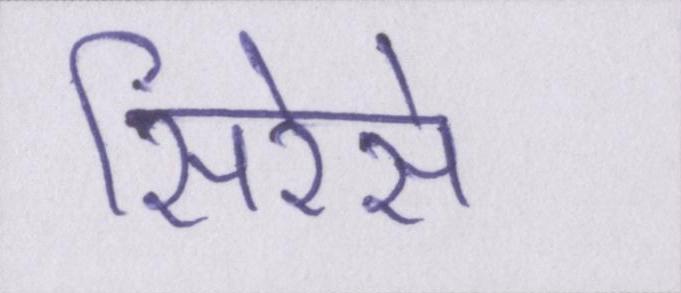 सिंरेसे